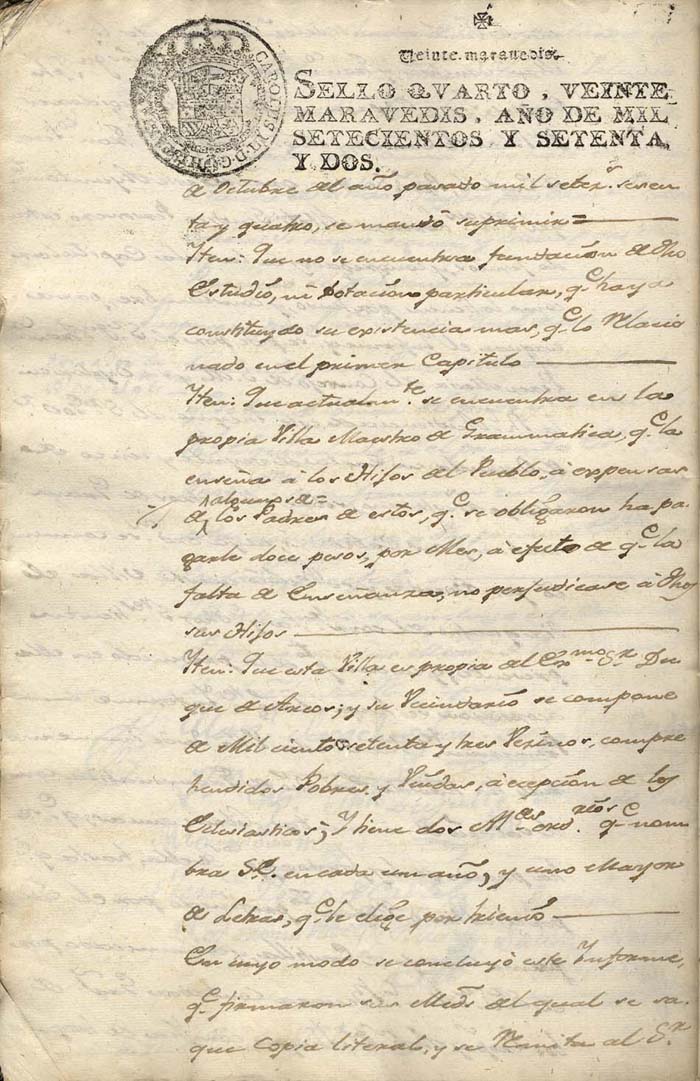 Veinte maravedis.
SELLO QVARTO, VEINTE
MARAVEDIS, AÑO DE MIL
SETECIENTOS Y SETENTA
Y DOS.
CAROLUS III D G HISP
de Octubre del año pasado mil setez.s sesen
ta y quatro, se mandò suprimir=
Iten: Que no se encuentra fundación de dho
Estudio, ni Dotación particular, q.e haya
constituydo su existencia mas, q.e lo Relacio
nado en el primer Capitulo
Iten: Que actualm.te se encuentra en la
propia Villa Maestro de Grammatica, q.e la
enseña à los Hijos del Pueblo, à expensas
algunos de=
de los Padres de estos, q.e se obligaron ha pa
garle doce pesos, por Mes, à efecto de q.e la
falta de Enseñanza, no perjudicase à dhos
sus Hijos
Iten: Que esta Villa es propia del Ex.mo S.r Du
que de Arcos; y su Vecindario se compone
de Mil ciento setenta y tres Vezinos, compre
hendidos Pobres y Viudas, à ecepción de los
Eclesiasticos; Y tiene dos Al.es ord.rios q.e nom
bra S.E. en cada un año; y uno Mayor
de Letras, q.e le elige por trienio
En cuyo modo se concluyò este Informe,
q.e firmaron sus Mrds del qual se sa
que Copia literal, y se Remita al S.r